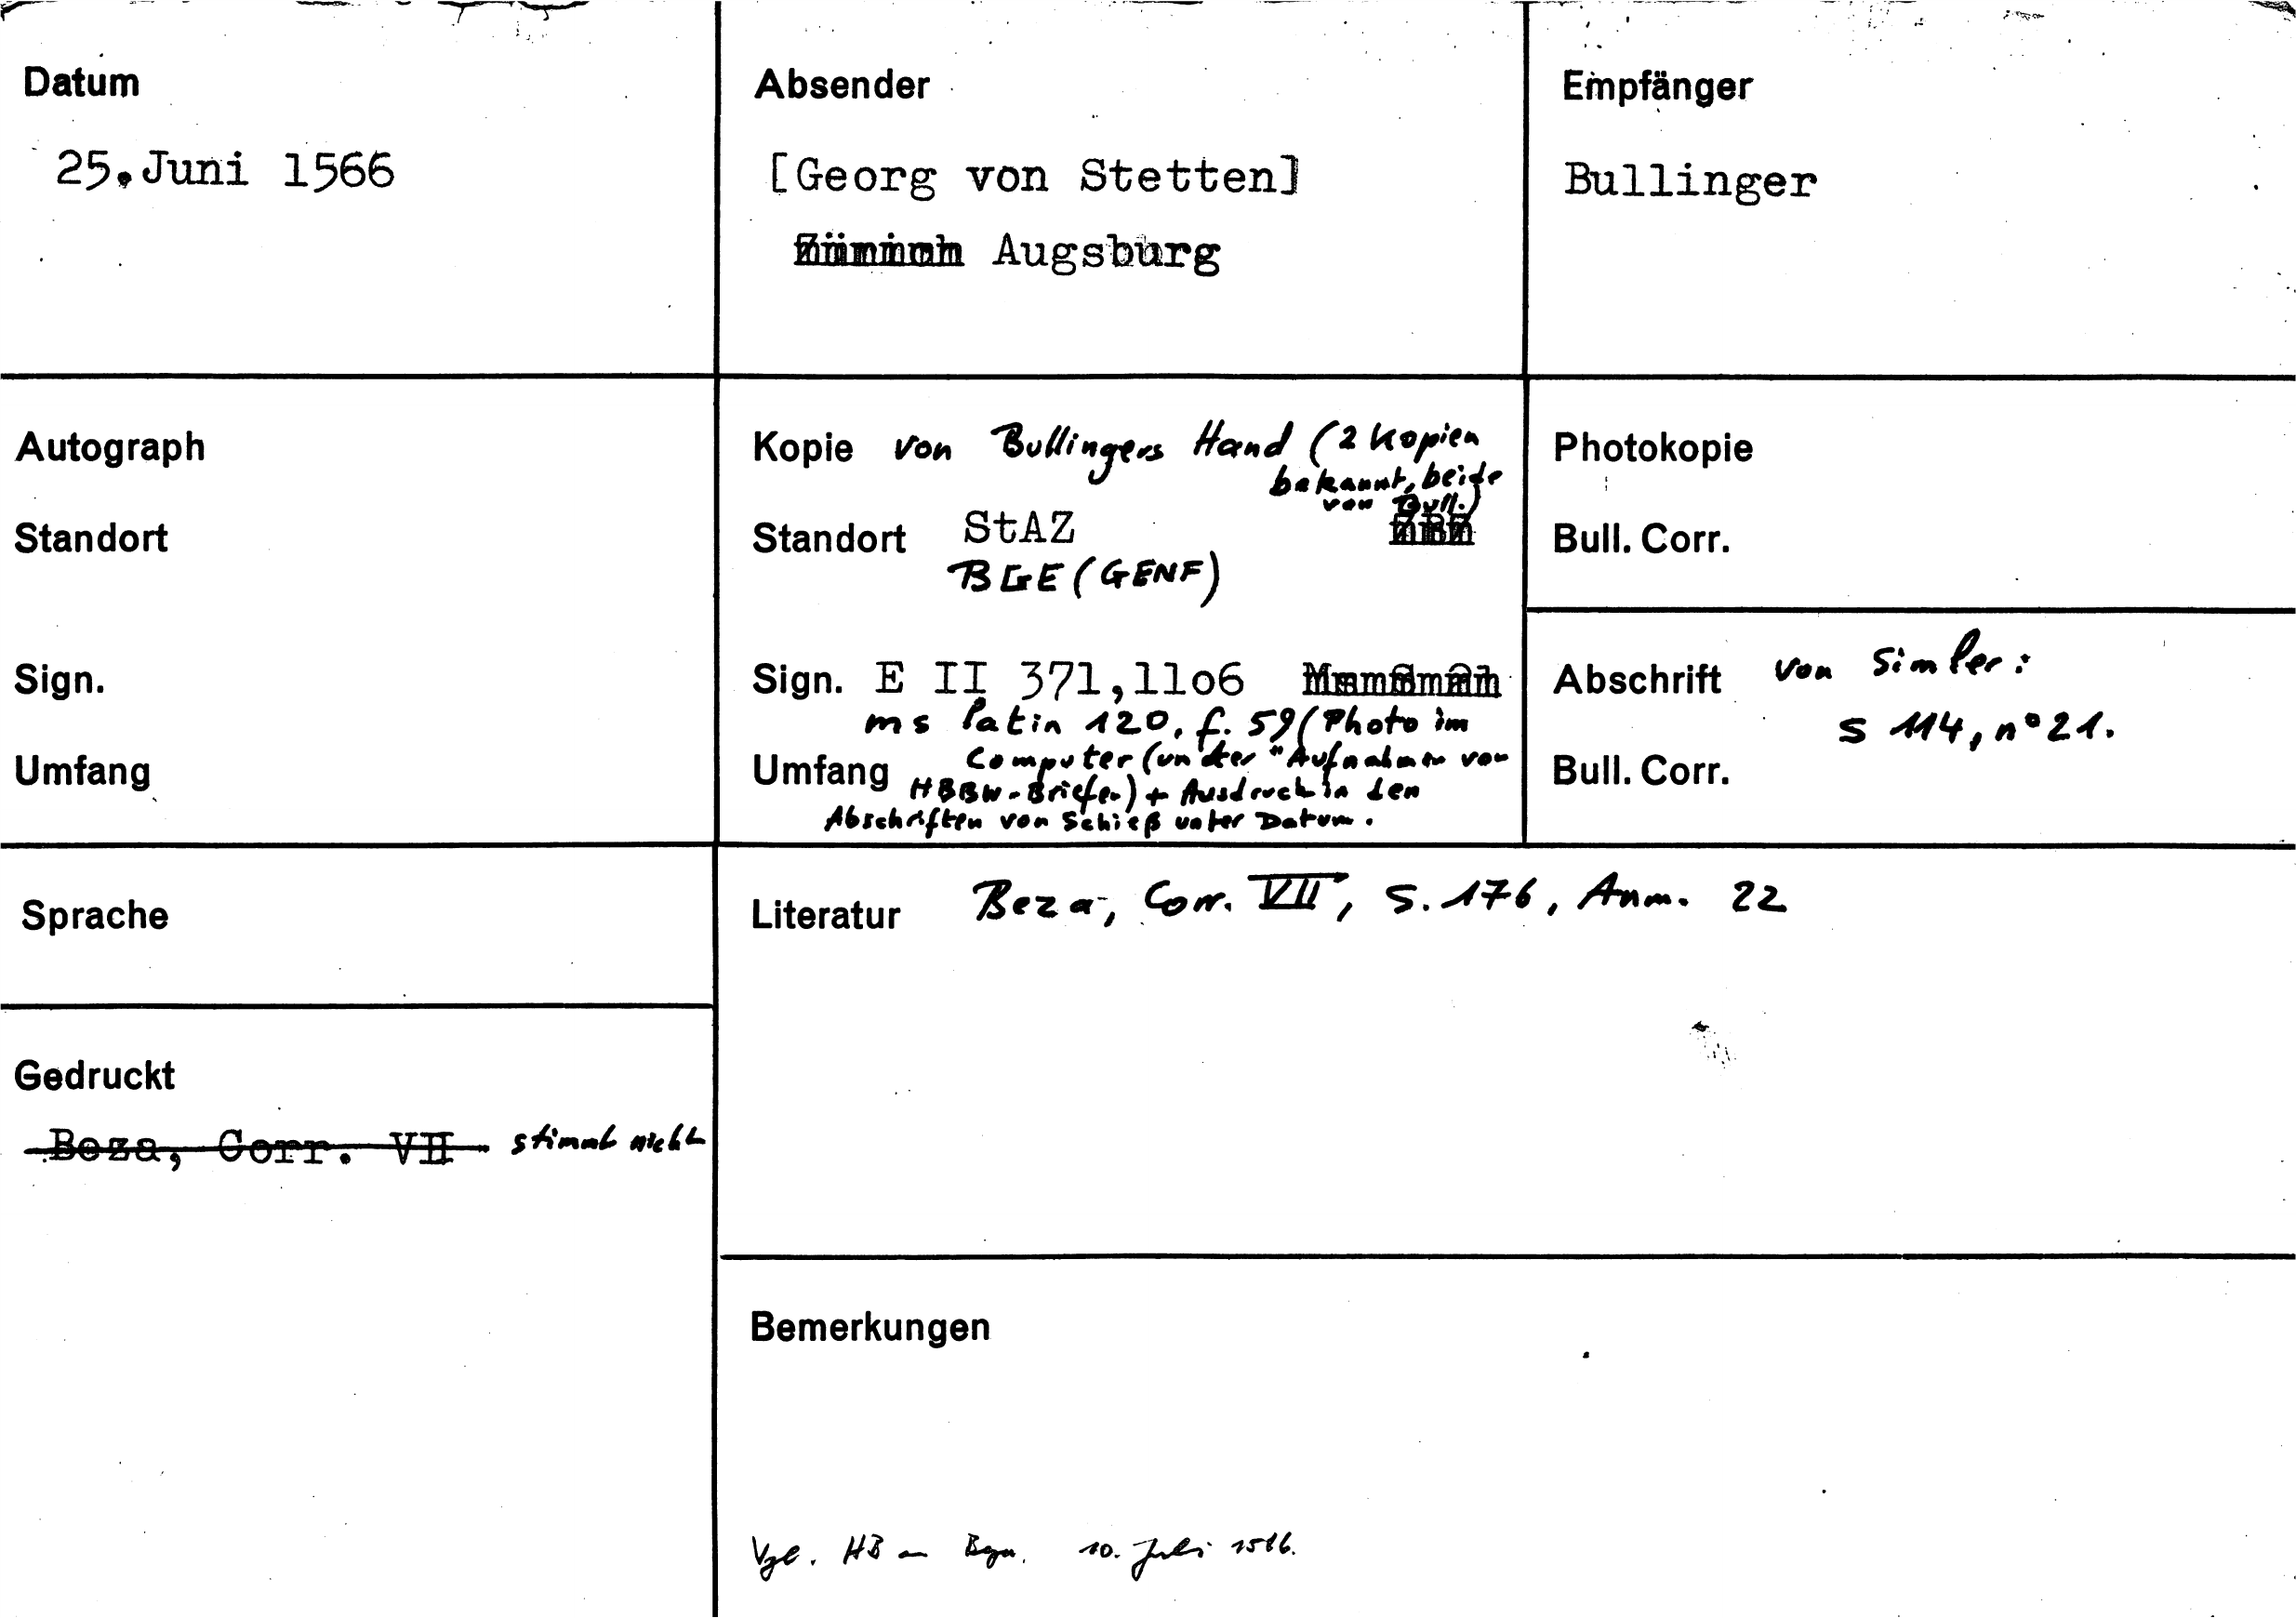 Datum
25. Juni 1566
Absender
[Georg von Stetten]
Augsburg
Empfänger
Bullinger
Autograph
Standort
Sign.
Umfang
Kopie von Bullingers Hand (2 Kopien
bekannt, beide
von Bull.)
Standort StAZ
BGE (GENF)
Sign. E II 371,11o6
ms latin 120, f. 59 (Photo im
Computer (unter "Aufnahmen von
Umfang HBBW-Briefen) + Ausdruck in den
Abschriften von Schieß unter Datum.
Photokopie
Bull. Corr.
Abschrift von Simler:
S 114, n° 21.
Bull. Corr.
Sprache
Literatur Beza, Corr. VII, S. 176, Anm. 22
Gedruckt
Beza, Corr. VII stimmt nicht
Bemerkungen
Vgl. HB an 10. Juli 1566.